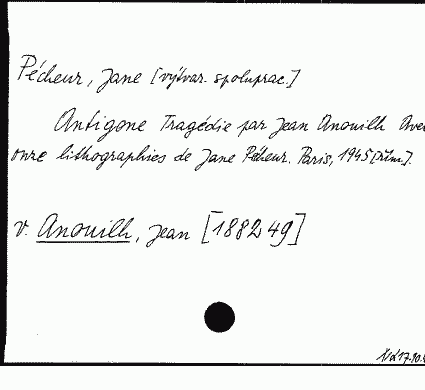 Pécheur, Jane [výtvar. spoluprac.]
Antigone Tragédie par Jean Anouilh Avec
onze lithographies de Jane Pécheur. Paris, 1945 [řím.].
v. Anouilh, Jean [188249]
17.10.